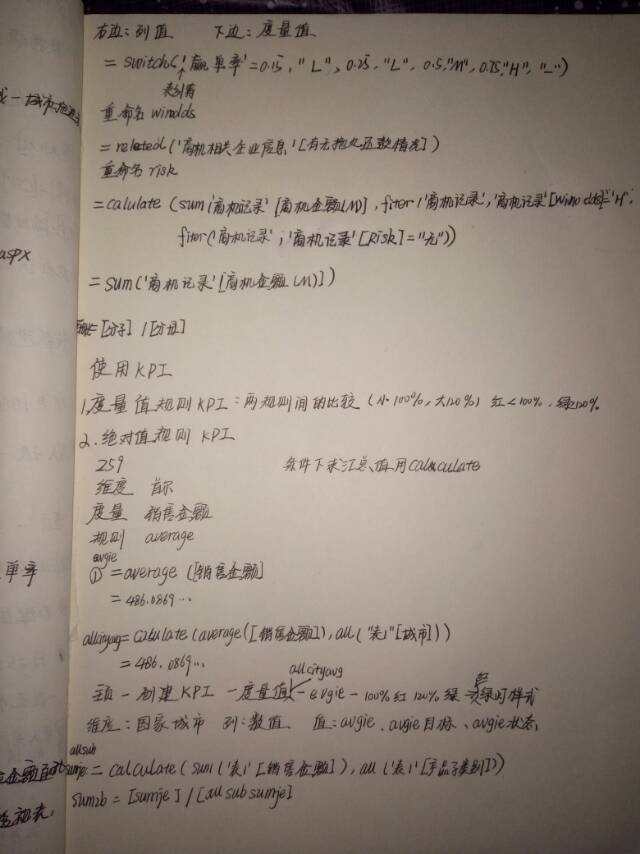 右边:列值 下边:度量值
= switch('赢单率'=0.15,"L",0.25,"L",0.5,"M",0.75,"H","-")
重命名 windds
= related('商机相关企业信息'[有无拖欠还款情况])
重命名 risk
= calulate (sum('商机记录'[商机金额(M)],fiter('商机记录','商机记录'[Windds]="H",
fiter('商机记录','商机记录'[Risk]="无"))
= sum('商机记录'[商机金额(M)])
=[分子]/[分母]
使用KPI
1.度量值规则KPI:两规则间的比较(小100%,大120%)红<100%,绿≥120%
2.绝对值规则 KPI
259 条件下求汇总值用calculate
维度 首尔
度量 销售金额
规则 average
avgje
① =average([销售金额]
=486.0869…
allcityavg=calulate(average([销售金额]),all("表"[城市]))
=486.0869…
allcityavg
创建KPI-度量值-avgje-100%红120%绿 红绿灯样式
维度:国家城市 列:数值 值:avgje、avgje目标、avgje状态,
allsub
sumje=calculate(sum('表'[销售金额]),all('表'[产品子类别]))
sumzb=[sumje]/[allsubsumje]
aspx
单率